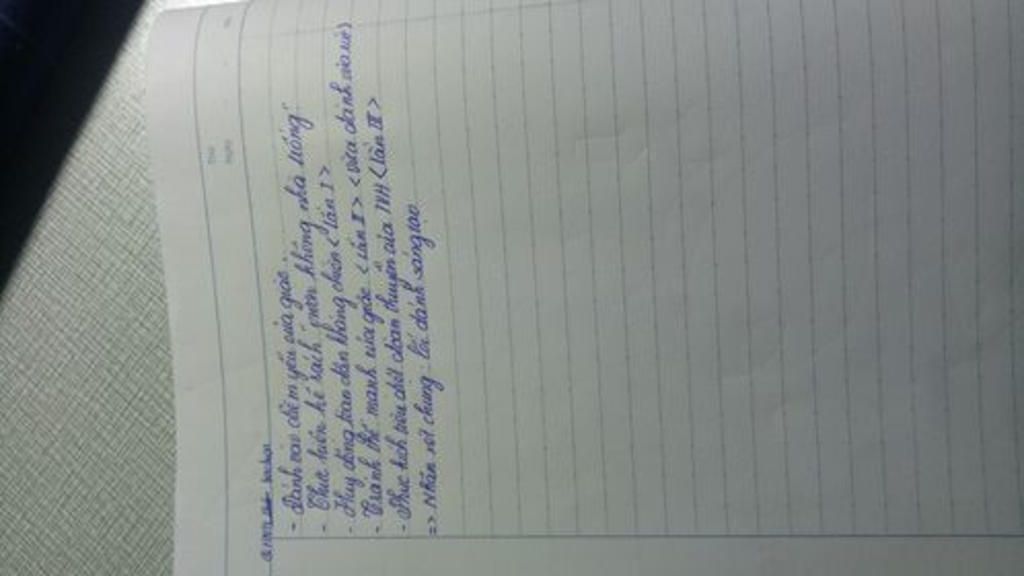 - Đánh vào điểm yếu của giặc.
- Thực hiện kế sách "vườn không nhà trống".
- Huy động toàn dân kháng chiến < lần I >
- Tránh thế mạnh của giặc < lần II > < vừa đánh vừa rút >
- Phục kích tiêu diệt đoàn thuyền của TVH < lần III >
=> Nhận xét chung: lối đánh sáng tạo.